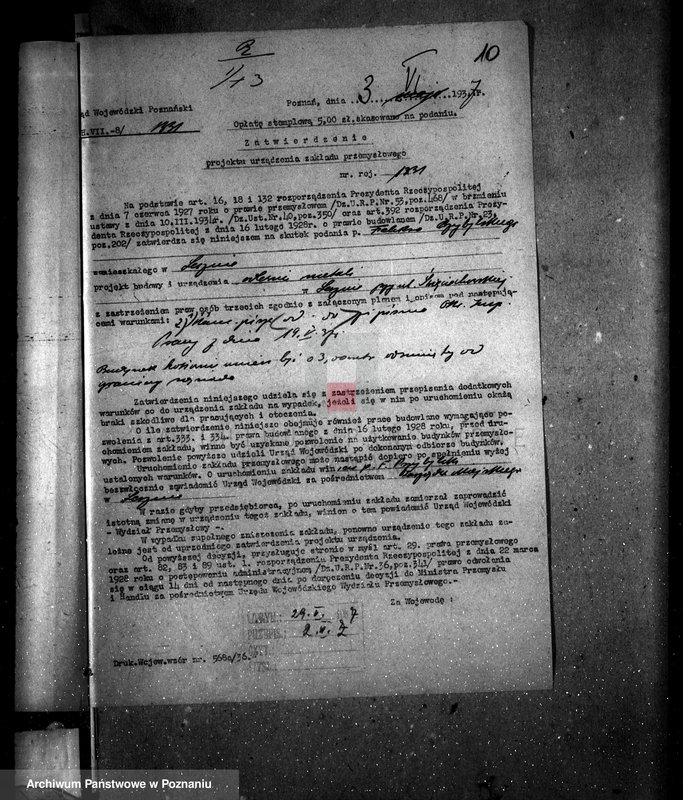 10
1/13
Poznań, dnia 3 VI 1937r.
ąd Wojewódzki Poznański
H.VII.-8/ 1931
Opłatę stemplową 5,00 zł.skasowano na podaniu.
Zatwierdzenie
projektu urządzenia zakładu przemysłowego
nr. rej. 1831
Na podstawie art. 16, 18 i 132 rozporządzenia Prezydenta Rzeczypospolitej
z dnia 7 czerwca 1927 roku o prawie przemysłowem /Dz.U.R.P.Nr.53,poz.468/ w brzmieniu
ustawy z dnia 10.III.1934r. /Dz.Ust.Nr.40,poz.350/ oraz art.392 rozporządzenia Prezy-
denta Rzeczypospolitej z dnia 16 lutego 1928r. o prawie budowlanem /Dz.U.R.P.Nr.23,
poz.202/ zatwierdza się niniejszem na skutek podania p.
zamieszkałego w
projekt budowy i urządzenia odlewni metali
w
z zastrzeżeniem praw osób trzecich zgodnie z załączonym planem i opisem pod następują-
cemi warunkami:
Pracy z dnia 19.V.37r.
Budynek
granicy
Zatwierdzenia niniejszego udziela się z zastrzeżeniem przepisania dodatkowych
warunków co do urządzenia zakładu na wypadek, jeżeli się w nim po uruchomieniu okażą
braki szkodliwe dla pracujących i otoczenia.
O ile zatwierdzenie niniejsze obejmuje również prace budowlane wymagające po-
zwolenia z art.333. i 334. prawa budowlanego z dnia 16 lutego 1928 roku, przed uru-
chomieniem zakładu, winno być uzyskane pozwolenie na użytkowanie budynków przemysło-
wych. Pozwolenie powyższe udzieli Urząd Wojewódzki po dokonanym odbiorze budynków.
Uruchomienie zakładu przemysłowego może nastąpić dopiero po spełnieniu wyżej
ustalonych warunków. O uruchomieniu zakładu winien p.
bezzwłocznie zawiadomić Urząd Wojewódzki za pośrednictwem
w
W razie gdyby przedsiębiorca, po uruchomieniu zakładu zamierzał zaprowadzić
istotną zmianę w urządzeniu tegoż zakładu, winien o tem powiadomić Urząd Wojewódzki
- Wydział Przemysłowy -.
W wypadku zupełnego zniszczenia zakładu, ponowne urządzenie tego zakładu za-
leżne jest od uprzedniego zatwierdzenia projektu urządzenia.
Od powyższej decyzji, przysługuje stronie w myśl art. 29. prawa przemysłowego
oraz art. 82, 83 i 89 ust. 1. rozporządzenia Prezydenta Rzeczypospolitej z dnia 22 marca
1928 roku o postępowaniu administracyjnem /Dz.U.R.P.Nr.36,poz.341/ prawo odwołania
się w ciągu 14 dni od następnego dnia po doręczeniu decyzji do Ministra Przemysłu
i Handlu za pośrednictwem Urzędu Wojewódzkiego Wydziału Przemysłowego.-
Za Wojewodę :
Druk.Wojew.wzór nr. 568a/36.
Archiwum Państwowe w Poznaniu